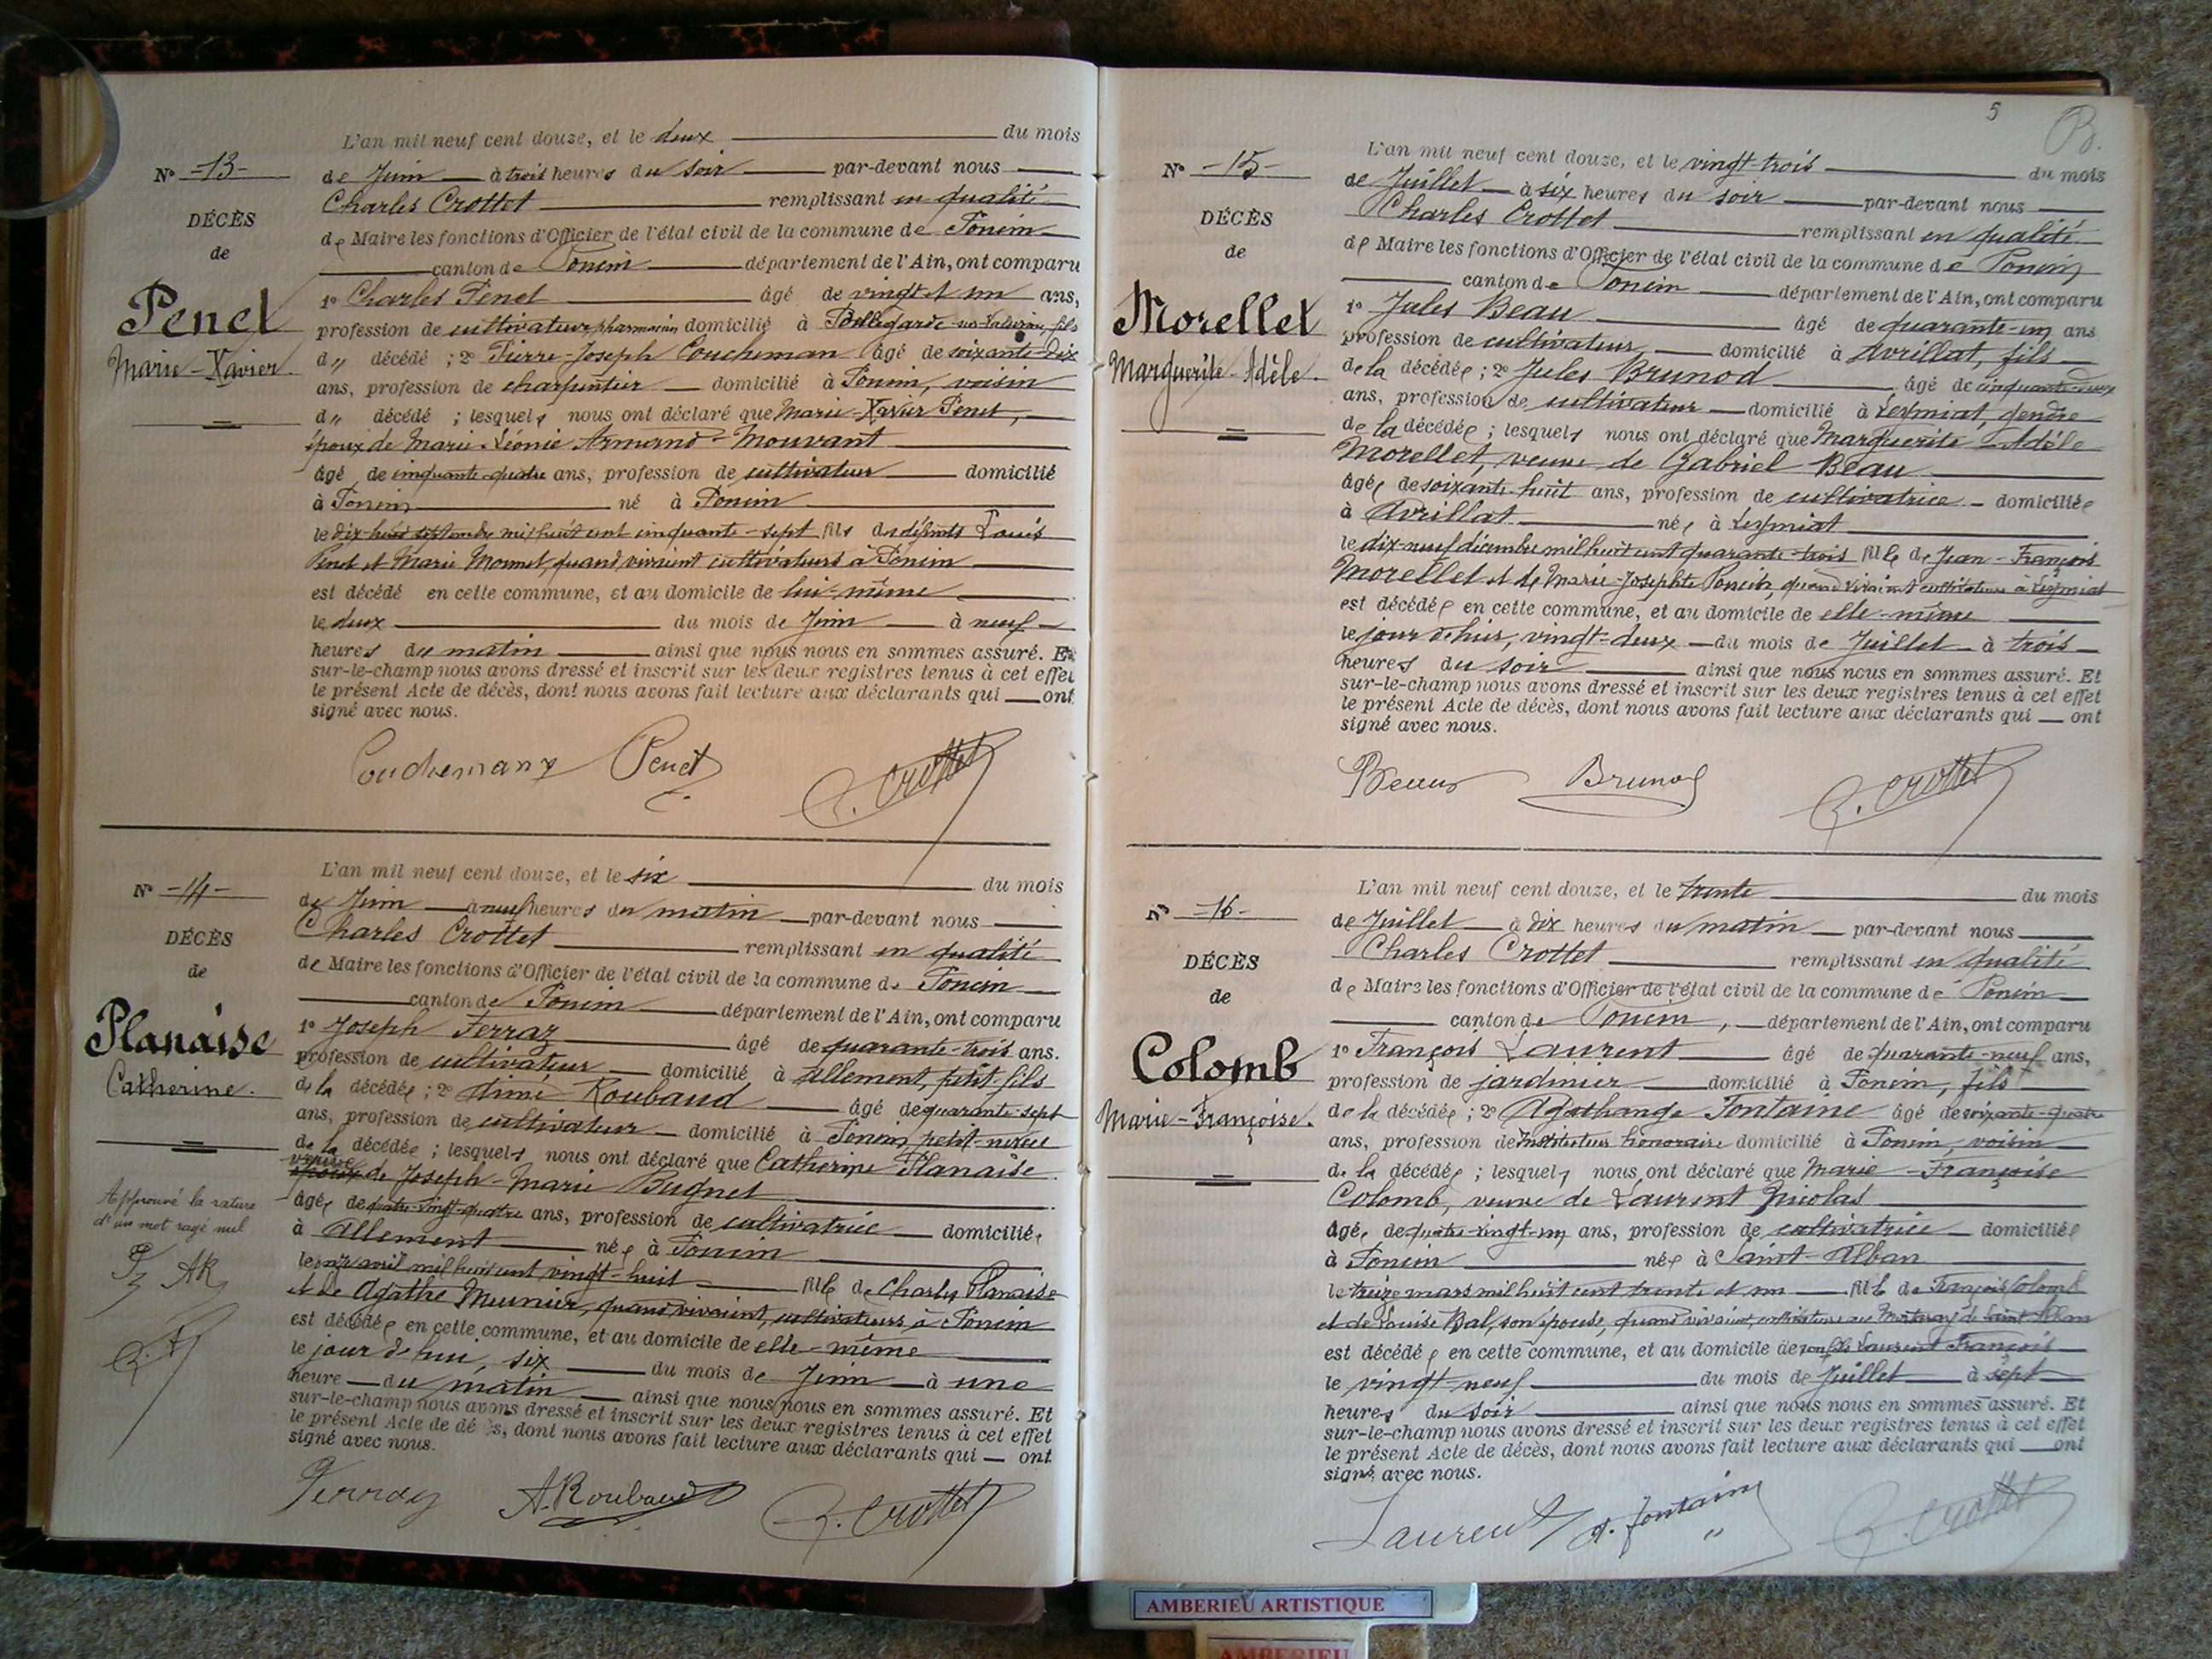 L'an mil neuf cent douze, et le deux du mois
N° -13- de Juin à trois heures du soir par-devant nous
Charles Crottet remplissant en qualité
DÉCÈS
de Maire les fonctions d'Officier de l'état civil de la commune de Poncin
de
canton de Poncin département de l'Ain, ont comparu
Penet
1° Charles Penet âgé de vingt et un ans,
profession de cultivateur pharmacien domicilié à fils
Marie-Xavier.
d" décédé ; 2° Pierre-Joseph Coucheman âgé de soixante-dix
ans, profession de charpentier domicilié à Poncin, voisin
d" décédé ; lesquels nous ont déclaré que Marie-Xavier Penet,
époux de Marie-Léonie Armand-Mouvant
âgé de cinquante-quatre ans, profession de cultivateur domicilié
à Poncin né à Poncin
le dix-huit septembre mil huit cent cinquante-sept fils des défunts Louis
Penet et Marie Monnet, quand vivaient cultivateurs à Poncin
est décédé en cette commune, et au domicile de lui-même
le deux du mois de Juin à neuf
heures du matin ainsi que nous nous en sommes assuré. Et
sur-le-champ nous avons dressé et inscrit sur les deux registres tenus à cet effet
le présent Acte de décès, dont nous avons fait lecture aux déclarants qui ont
signé avec nous.
Couchemanx Penet C. Crottet
L'an mil neuf cent douze, et le six du mois
N° -14- de Juin à neuf heures du matin par-devant nous
Charles Crottet remplissant en qualité
DÉCÈS
de Maire les fonctions d'Officier de l'état civil de la commune de Poncin
de
canton de Poncin département de l'Ain, ont comparu
Planaise
1° Joseph Ferraz âgé de quarante-trois ans.
profession de cultivateur domicilié à Allement, petit-fils
Catherine.
de la décédée ; 2° Aimé Roubaud âgé de quarante-sept
ans, profession de cultivateur domicilié à Poncin petit-neveu
de la décédée ; lesquels nous ont déclaré que Catherine Planaise
veuve
épouse de Joseph-Marie Bugnet
Approuvé la rature
d'un mot rayé nul
âgée de quatre-vingt-quatre ans, profession de cultivatrice domiciliée
à Allement née à Poncin
le onze avril mil huit cent vingt-huit fille de Charles Planaise
et de Agathe Meunier, quand vivaient, cultivateurs à Poncin
AR
est décédée en cette commune, et au domicile de elle-même
le jour d'hui, six du mois de Juin à une
heure du matin ainsi que nous nous en sommes assuré. Et
sur-le-champ nous avons dressé et inscrit sur les deux registres tenus à cet effet
le présent Acte de décès, dont nous avons fait lecture aux déclarants qui ont
signé avec nous.
Ferraz A. Roubaud C. Crottet
5
B.
L'an mil neuf cent douze, et le vingt-trois du mois
N° -15- de Juillet à six heures du soir par-devant nous
Charles Crottet remplissant en qualité
DÉCÈS
de Maire les fonctions d'Officier de l'état civil de la commune de Poncin
de
canton de Poncin département de l'Ain, ont comparu
Morellet
1° Jules Beau âgé de quarante-un ans
profession de cultivateur domicilié à Avrillat, fils
Marguerite-Adèle.
de la décédée ; 2° Jules Brunod âgé de cinquante-deux
ans, profession de cultivateur domicilié à Leymiat, gendre
de la décédée ; lesquels nous ont déclaré que Marguerite Adèle
Morellet, veuve de Gabriel Beau
âgée de soixante-huit ans, profession de cultivatrice domiciliée
à Avrillat née à Leymiat
le dix-neuf décembre mil huit cent quarante-trois fille de Jean-François
Morellet et de Marie-Josephte Poncin, quand vivaient cultivateurs à Leymiat
est décédée en cette commune, et au domicile de elle-même
le jour d'hier, vingt-deux du mois de Juillet à trois
heures du soir ainsi que nous nous en sommes assuré. Et
sur-le-champ nous avons dressé et inscrit sur les deux registres tenus à cet effet
le présent Acte de décès, dont nous avons fait lecture aux déclarants qui ont
signé avec nous.
Beau Brunod C. Crottet
L'an mil neuf cent douze, et le trente du mois
N° -16- de Juillet à dix heures du matin par-devant nous
Charles Crottet remplissant en qualité
DÉCÈS
de Maire les fonctions d'Officier de l'état civil de la commune de Poncin
de
canton de Poncin, département de l'Ain, ont comparu
Colomb
1° François Laurent âgé de quarante-neuf ans,
profession de jardinier domicilié à Poncin, fils
Marie-Françoise.
de la décédée ; 2° Agathange Fontaine âgé de soixante-quatre
ans, profession de Instituteur honoraire domicilié à Poncin, voisin
de la décédée ; lesquels nous ont déclaré que Marie-Françoise
Colomb, veuve de Laurent Nicolas
âgée de quatre-vingt-un ans, profession de cultivatrice domiciliée
à Poncin née à Saint-Alban
le treize mars mil huit cent trente et un fille de François Colomb
et de Louise Bal, son épouse, quand vivaient, cultivateurs au de Saint Alban
est décédée en cette commune, et au domicile de son fils Laurent François
le vingt-neuf du mois de Juillet à sept
heures du soir ainsi que nous nous en sommes assuré. Et
sur-le-champ nous avons dressé et inscrit sur les deux registres tenus à cet effet
le présent Acte de décès, dont nous avons fait lecture aux déclarants qui ont
signé avec nous.
Laurent A. Fontaine C. Crottet
AMBERIEU ARTISTIQUE
AMBERIEU